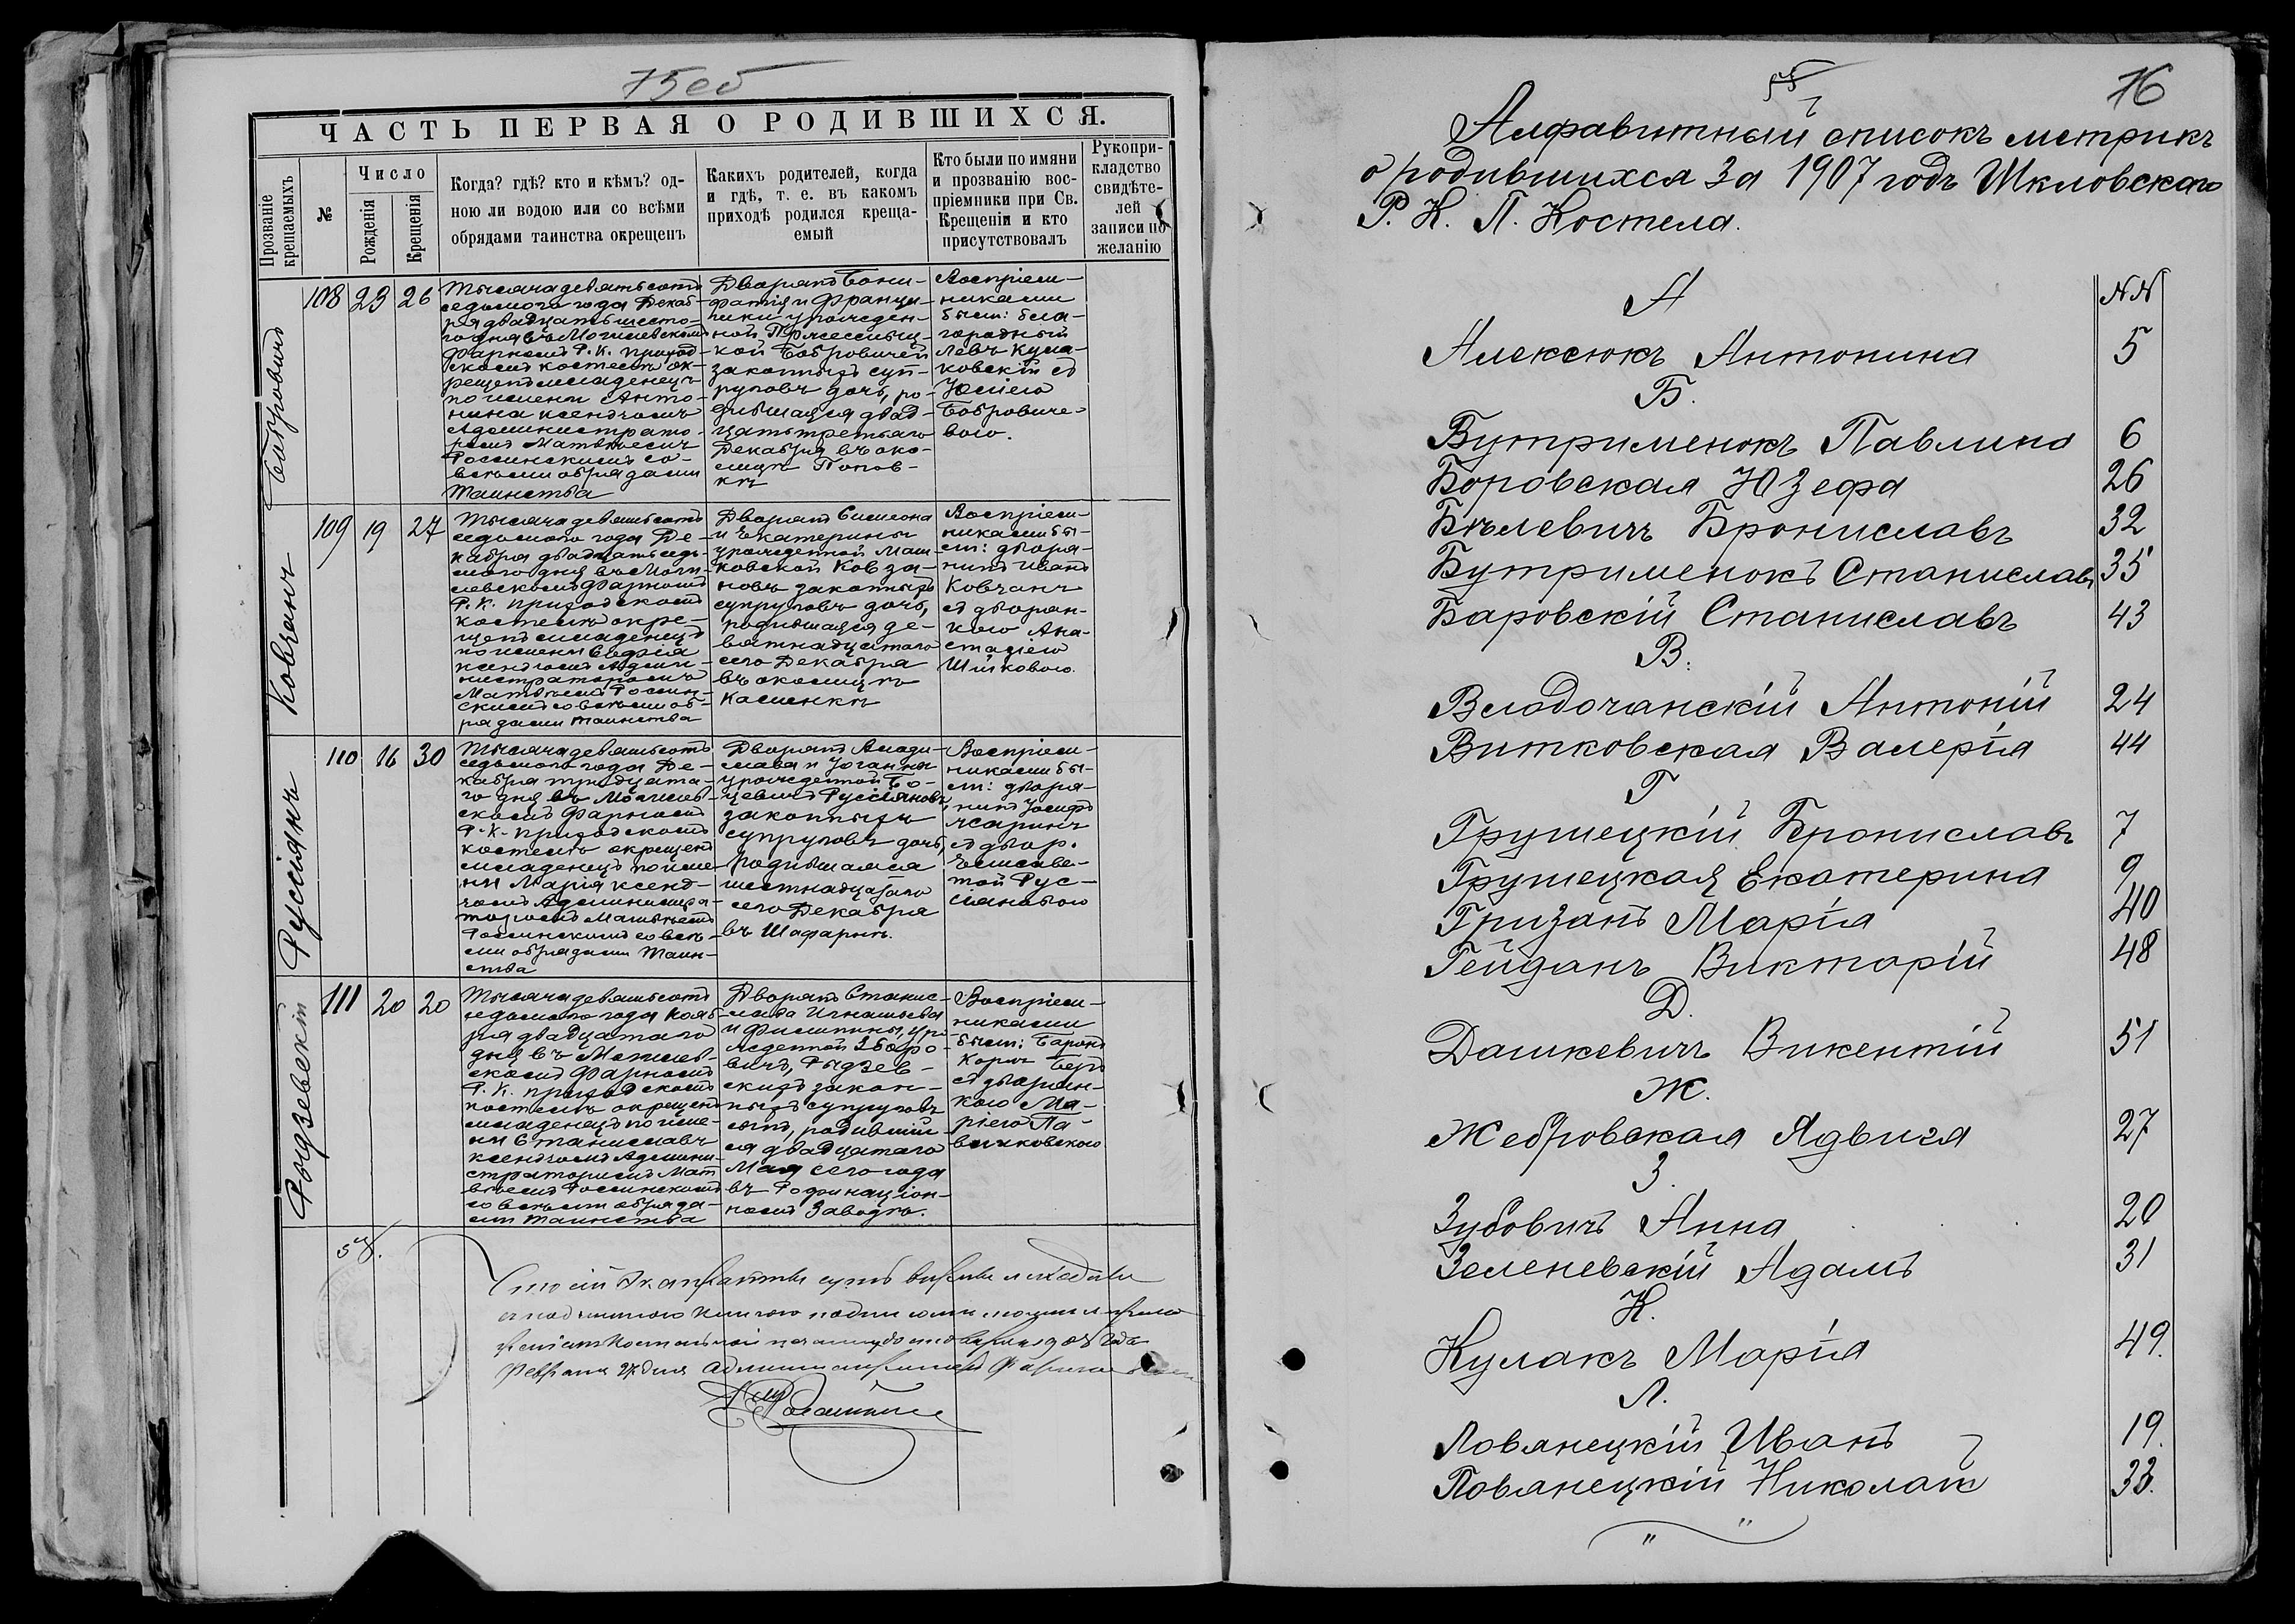 75 об
ЧАСТЬ ПЕРВАЯ О РОДИВШИХСЯ.
Прозваніе крещаемыхъ
№
Число
Рожденія
Крещенія
Когда? гдѣ? кто и кѣмъ? од-
ною ли водою или со всѣми
обрядами таинства окрещенъ
Какихъ родителей, когда
и гдѣ, т. е. въ какомъ
приходѣ родился креща-
емый
Кто были по имяни
и прозванію вос-
пріемники при Св.
Крещеніи и кто
присутствовалъ
Рукопри-
кладство
свидѣте-
лей
записи по
желанію
Бобровичъ
108 23 26
Тысяча девятьсотъ
седьмого года Декаб-
ря двадцать шесто-
го дня въ Могилевскомъ
Фарномъ Р. К. приход-
скомъ костелѣ ок-
рещенъ младенецъ
по имени Анто-
нина ксендзомъ
Администрато-
ромъ Матвѣемъ
Россинскимъ со
всѣми обрядами
таинства
Дворянъ Бони-
фатія и Франци-
шки урожден-
ной
кой Бобровичей
законныхъ суп-
руговъ дочь, ро-
дившаяся двад-
цать третьяго
Декабря въ око-
лицѣ Попов-
кѣ
Воспріем-
никами
были: бла-
городный
Левъ Кула-
ковскій съ
Юліею
Бобровиче-
вою.
Ковзанъ
109 19 27
Тысяча девятьсотъ
седьмого года Де-
кабря двадцать седь-
мого дня въ Моги-
левскомъ Фарномъ
Р. К. приходскомъ
костелѣ окре-
щенъ младенецъ
по имени Софія
ксендзомъ Адми-
нистраторомъ
Матвѣемъ Россин-
скимъ со всѣми об-
рядами таинства
Дворянъ Симеона
и Екатерины
урожденной Маш-
ковской Ковза-
новъ законныхъ
супруговъ дочь,
родившаяся де-
вятнадцатого
сего Декабря
въ околицѣ
Каменкѣ
Воспріем-
никами бы-
ли: дворя-
нинъ Иванъ
Ковзанъ
съ дворян-
кою Ана-
стасіею
Шинковою.
Руссіянъ
110 16 30
Тысяча девятьсотъ
седьмого года Де-
кабря тридцата-
го дня въ Могилев-
скомъ Фарномъ
Р. К. приходскомъ
костелѣ окрещенъ
младенецъ по име-
ни Марія ксенд-
зомъ Администра-
торомъ Матвѣемъ
Россинскимъ со всѣ-
ми обрядами таин-
ства
Дворянъ Влади-
слава и Іоганны
урожденной Бо-
цевичъ Руссіяновъ
законныхъ
супруговъ дочь,
родившаяся
шестнадцатаго
сего Декабря
въ Шафарнѣ.
Воспріем-
никами бы-
ли: дворя-
нинъ Іосифъ
Жаринъ
съ двор.
Елисаве-
той Рус-
сіяновою
Рыдзевскій
111 20 20
Тысяча девятьсотъ
седьмого года Нояб-
ря двадцатаго
дня въ Могилев-
скомъ Фарномъ
Р. К. приходскомъ
костелѣ окрещенъ
младенецъ по име-
ни Станиславъ
ксендзомъ Админи-
страторомъ Мат-
вѣемъ Россинскимъ
со всѣми обряда-
ми таинства
Дворянъ Станис-
лава Игнатьева
и Филипины, уро-
жденной Збро-
вичъ, Рыдзев-
скихъ закон-
ныхъ супруговъ
сынъ, родивший-
ся двадцатаго
Мая сего года
въ Рафинаціон-
номъ Заводѣ.
Воспріем-
никами
были: Баронъ
Карлъ Беръ
съ дворян-
кою Ма-
ріею Па-
вликовскою
58.
Что сій Экстракты суть вѣрны и сходны
съ подлинною Книгою подписомъ моимъ и прило-
женіемъ Костельной печати удостовѣряю 1908 года
Февраля дня Администраторъ
76
Алфавитный списокъ метрикъ
о родившихся за 1907 годъ Шкловскаго
Р. К. П. Костела.
А №№
Алексюкъ Антонина 5
Б.
Бутрименокъ Павлина 6
Боровская Юзефа 26
Бѣлевичъ Брониславъ 32
Бутрименокъ Станиславъ 35
Баровскій Станиславъ 43
В.
Влодочанскій Антоній 24
Витковская Валерія 44
Г
Грушецкій Брониславъ 7
Грушецкая Екатерина 9
Гризанъ Марія 40
Гейданъ Викторій 48
Д.
Дашкевичъ Викентій 51
Ж.
Жебровская Ядвига 27
З.
Зубовичъ Анна 20
Зеленевскій Адамъ 31
К.
Кулакъ Марія 49.
Л.
Ловянецкій Иванъ 19.
Ловянецкій Николай 33.